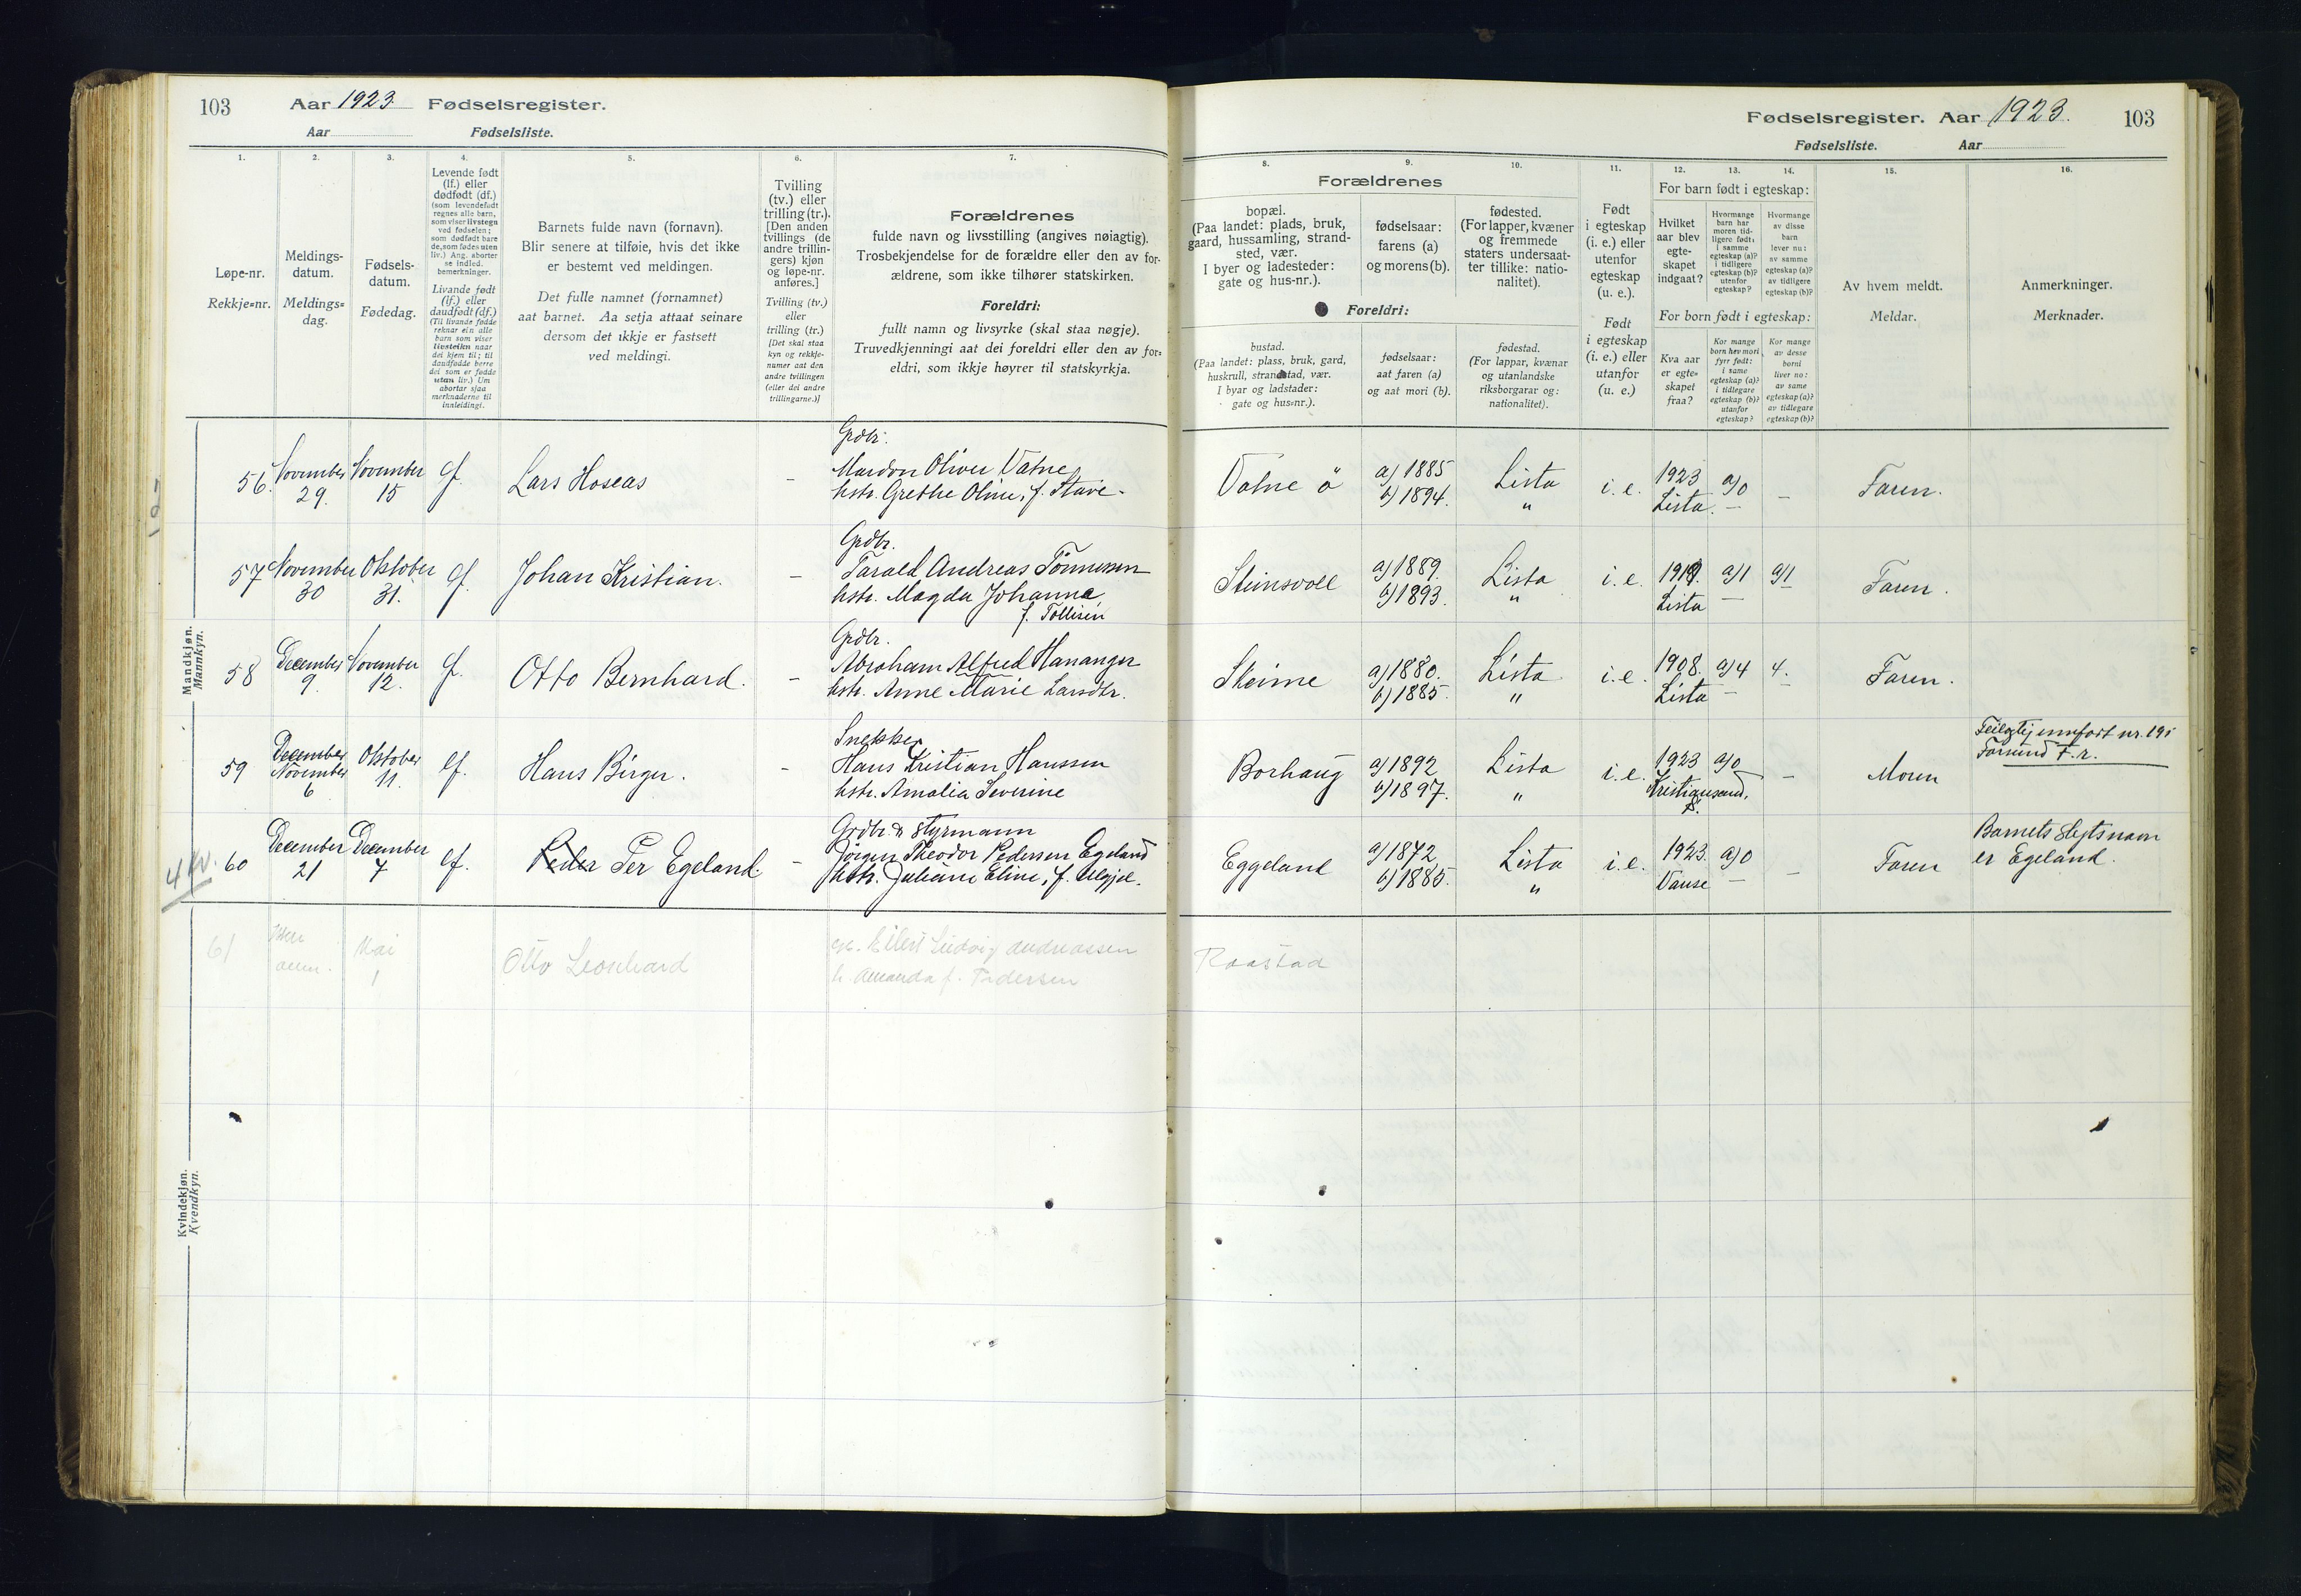 103 Aar 1923. Fødselsregister.
Aar Fødselsliste.
Fødselsregister. Aar 1923. 103
Fødselsliste. Aar
1. 2. 3. 4. 5. 6. 7.
Løpe-nr.
Rekkje=nr.
Meldings-
datum.
Meldings=
dag.
Fødsels-
datum.
Fødedag.
Levende født
(lf.) eller
dødfødt (df.)
(som levendefødt
regnes alle barn,
som viser livstegn
ved fødselen;
som dødfødt bare
de, som fødes uten
liv.) Ang. aborter
se indled.
bemerkninger.
Livande født
(lf.) eller
daudfødt (df.)
(Til livande fødde
reknar ein alle
barn som viser
livsteikn naar
dei kjem til; til
daudfødde berre
dei som er fødde
utan liv.) Um
abortar sjaa
merknaderne til
innleidingi.
Barnets fulde navn (fornavn).
Blir senere at tilføie, hvis det ikke
er bestemt ved meldingen.
Det fulle namnet (fornamnet)
aat barnet. Aa setja attaat seinare
dersom det ikkje er fastsett
ved meldingi.
Tvilling
(tv.) eller
trilling (tr.).
[Den anden
tvillings (de
andre trillin-
gers) kjøn
og løpe-nr.
anføres.]
Tvilling (tv.)
eller
trilling (tr.)
[Det skal staa
kyn og rekkje-
numer aat den
andre tvillingen
(eller dei andre
trillingarne.)]
Forældrenes
fulde navn og livsstilling (angives nøiagtig).
Trosbekjendelse for de forældre eller den av for-
ældrene, som ikke tilhører statskirken.
Foreldri:
fullt namn og livsyrke (skal staa nøgje).
Truvedkjenningi aat dei foreldri eller den av for=
eldri, som ikkje høyrer til statskyrkja.
8. 9. 10. 11. 12. 13. 14. 15. 16.
Forældrenes
bopæl.
(Paa landet: plads, bruk,
gaard, hussamling, strand-
sted, vær.
I byer og ladesteder:
gate og hus-nr.).
fødselsaar:
farens (a)
og morens (b).
fødested.
(For lapper, kvæner
og fremmede
staters undersaat-
ter tillike: natio-
nalitet).
Foreldri:
bustad.
(Paa landet: plass, bruk, gard,
huskrull, strandstad, vær.
I byar og ladstader:
gate og hus=nr.).
fødselsaar:
aat faren (a)
og aat mori (b).
fødestad.
(For lappar, kvænar
og utanlandske
riksborgarar og:
nationalitet).
Født
i egteskap
(i. e.) eller
utenfor
egteskap
(u. e.).
Født
i egteskap
(i. e.) eller
utanfor
(u. e.)
For barn født i egteskap:
Hvilket
aar blev
egte-
skapet
indgaat?
Hvormange
barn har
moren tid-
ligere født:
i samme
egteskap (a)?
i tidligere
egteskap (b)?
utenfor
egteskap?
Hvormange
av disse
barn
lever nu:
av samme
egteskap (a)?
av tidligere
egteskap (b)?
For born født i egteskap:
Kva aar
er egte=
skapet
fraa?
Kor mange
born hev mori
fyrr født:
i same
egteskap (a)?
i tidlegare
egteskap (b)?
utanfor
egteskap?
Kor mange
av desse
borni
liver no:
av same
egteskap (a)?
av tidlegare
egteskap (b)?
Av hvem meldt.
Meldar.
Anmerkninger.
Merknader.
Mandkjøn.
Mannkyn.
56. November 29. November 15 lf. Lars Hoseas -
Grdbr.
Mardon Oliver Vatne
hstr. Grethe Oline, f. Stave.
Vatne ö a) 1885 b) 1894. Lista " i. e. 1923 Lista. a) 0 - - Faren.
57 November 30 Oktober 31. lf. Johan Kristian. -
Grdbr.
Tarald Andreas Tönnessen
hstr. Magda Johanne
f. Tollisen
Steinsvoll a) 1889. b) 1893. Lista " i. e. 1919. Lista a) 1 - a) 1 - Faren.
58 December 9. November 12. lf. Otto Bernhard. -
Grdbr.
Abraham Alfred Hananger
hstr. Anne Marie Larsdtr.
Steine a) 1880. b) 1885. Lista " i. e. 1908. Lista a) 4 - 4. - Faren.
59 December November 6 Oktober 11. lf. Hans Birger. -
Snekker
Hans Kristian Hanssen
hstr. Amalia Severine
Borhaug a) 1892 b) 1897. Lista " i. e. 1923 Kristiansand. S. a) 0 - Moren
Feilagtig innført nr. 19 i
Farsund F. r.
60 December 21 December 7 lf. Peder Per Egeland. -
Grdbr. & styrmann
Jörgen Theodor Pedersen Egeland
hstr. Juliane Eline, f. Elgjel.
Eggeland a) 1872 b) 1885. Lista " i. e. 1923. Vanse a) 0 - - Faren
Barnets slegtsnavn
er Egeland.
61 Mai 1 Otto Leonhard
Eilert Ludvig Andreassen
h. Amanda f. Pedersen
Raastad
Kvindekjøn.
Kvendkyn.